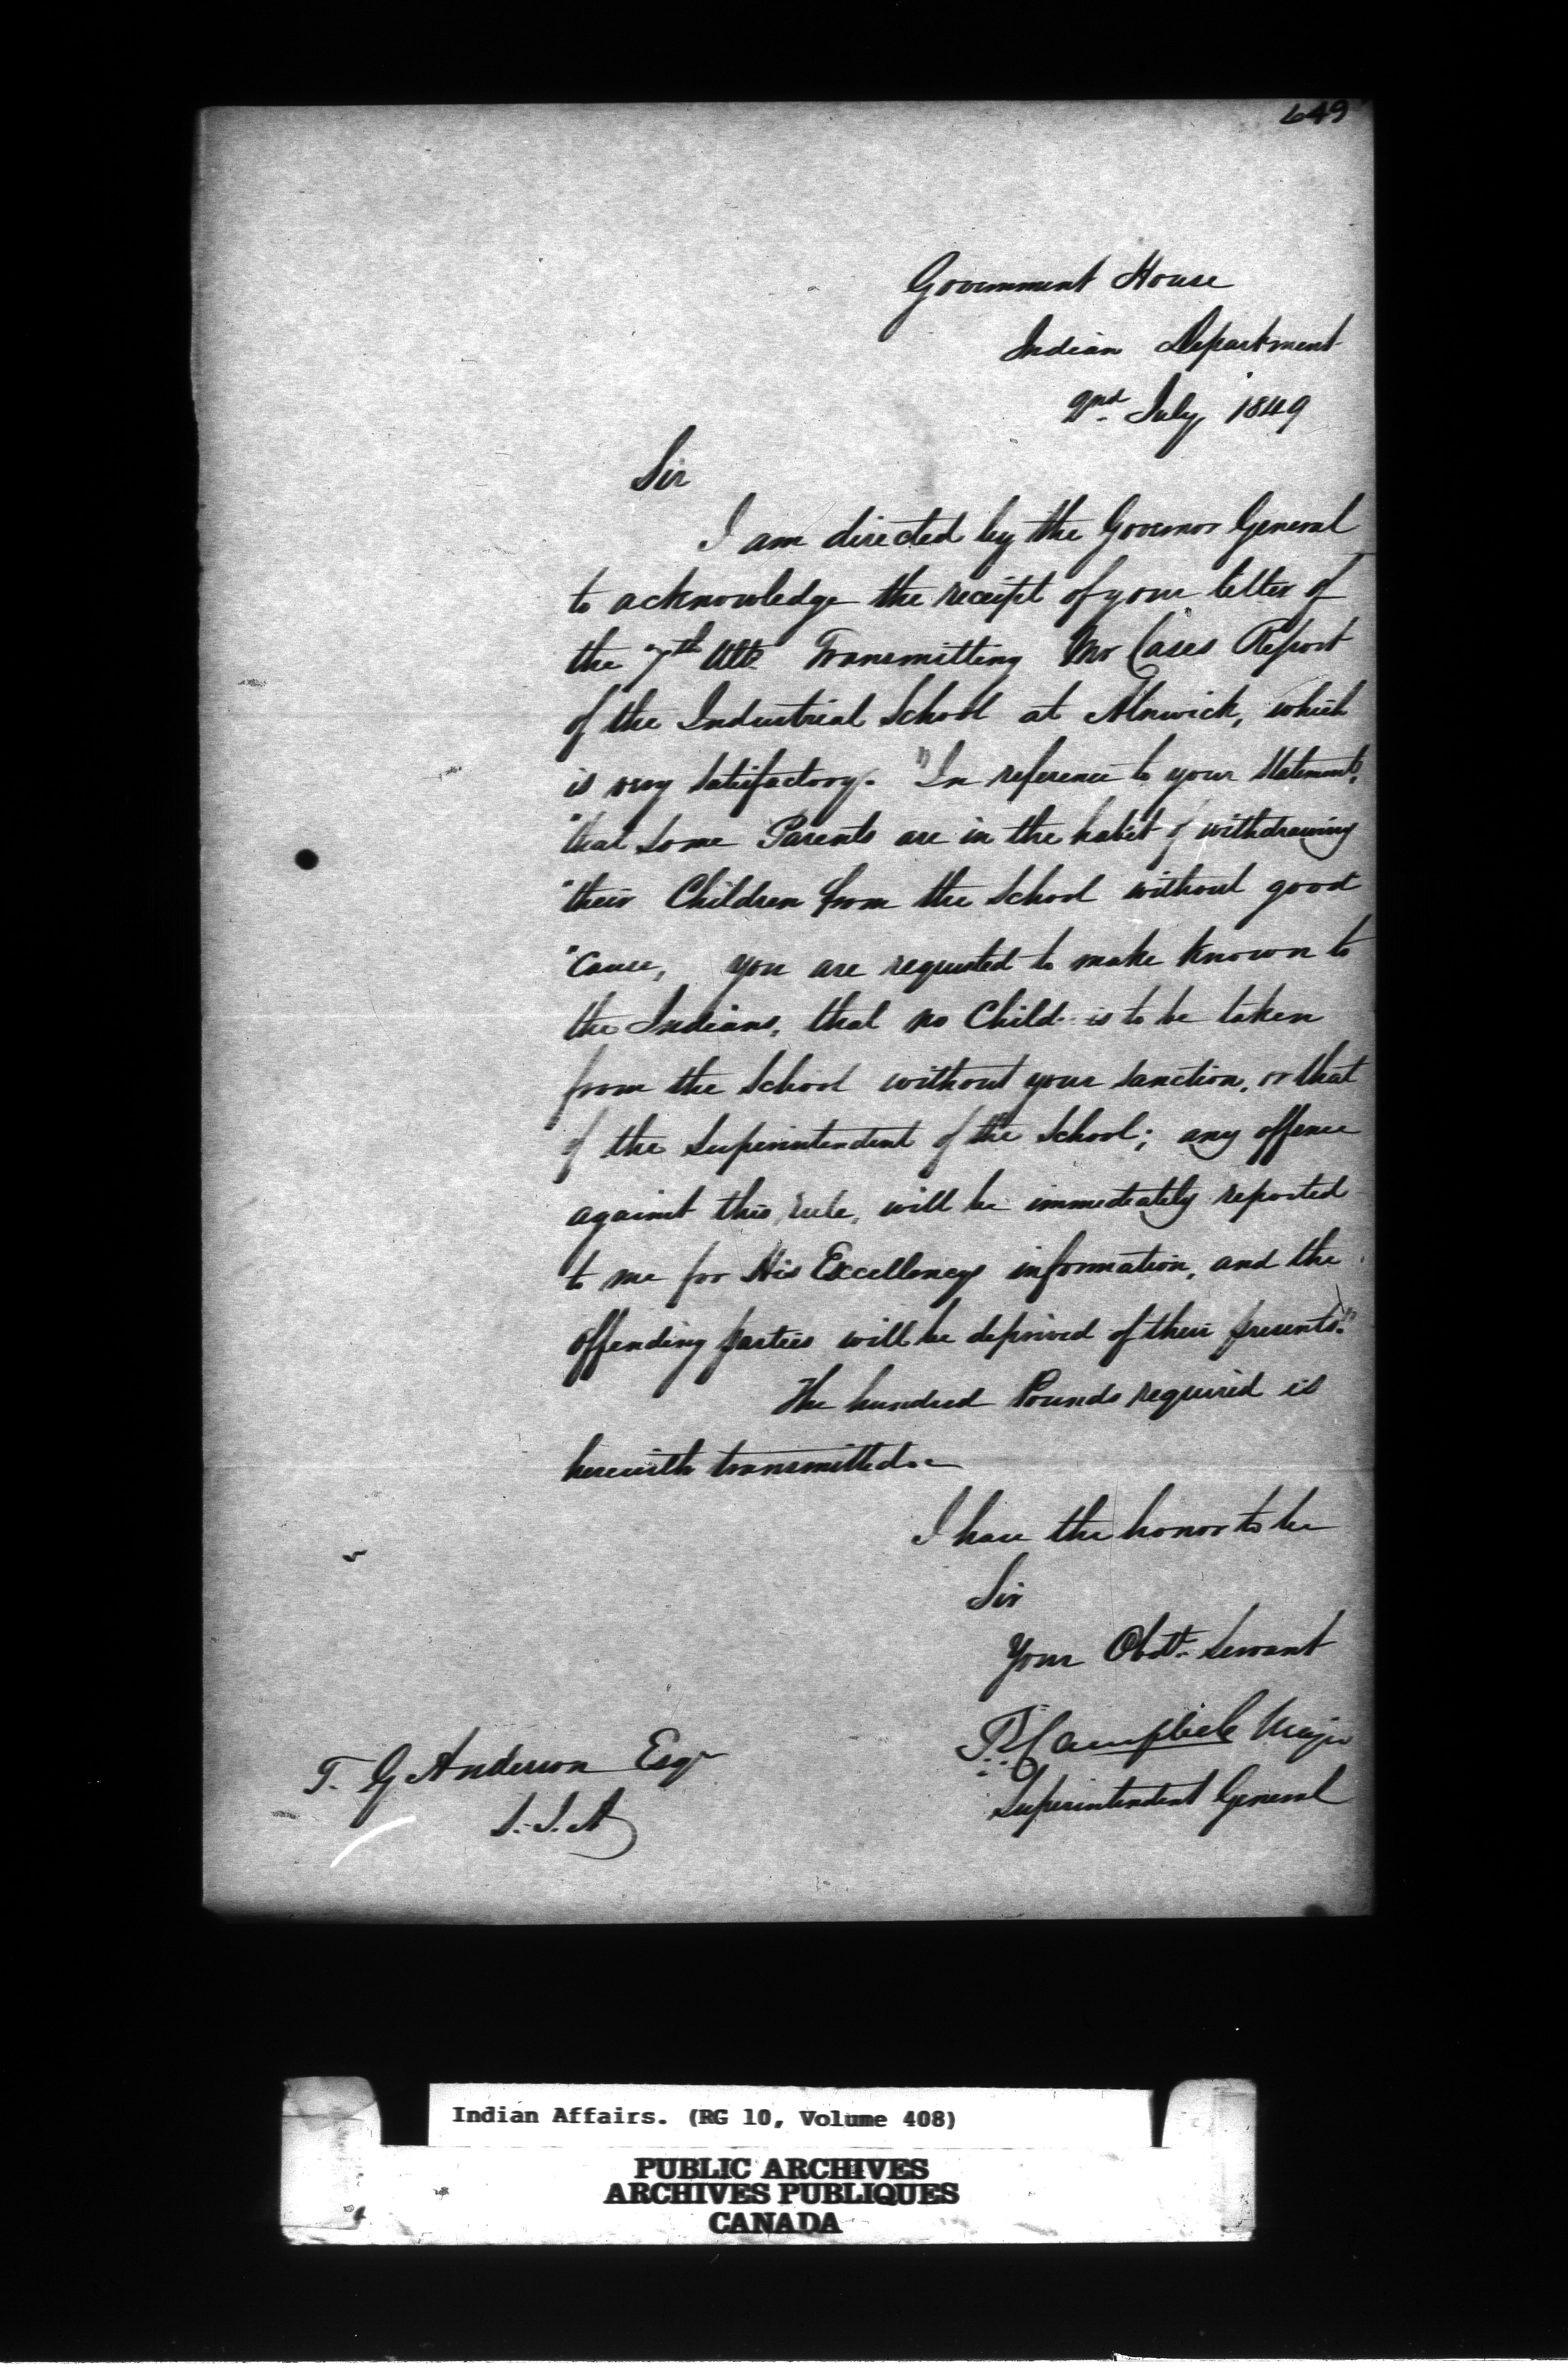 649
Government House
Indian Department
2nd July 1849
Sir
I am directed by the Governor General
to acknowledge the receipt of your letter of
the 7th Ulto Transmitting Mr Cases Report
of the Industrial School at Alnwick, which
is very satisfactory. "In reference to your statement,
"that some Parents are in the habit of withdrawing
"their Children from the School without good
"Cause, you are requested to make known to
the Indians, that no Child is to be taken
from the School without your sanction, or that
of the Superintendent of the School; any offence
against this rule, will be immediately reported
to me for His Excellencys information, and the
offending parties will be deprived of their presents."
The hundred Pounds required is
herewith transmitted.
I have the honor to be
Sir
Your Obdt. Servant
T. Campbell Major
Superintendent General
T. G Anderson Esqr
S.I.A
Indian Affairs. (RG 10, Volume 408)
PUBLIC ARCHIVES
ARCHIVES PUBLIQUES
CANADA